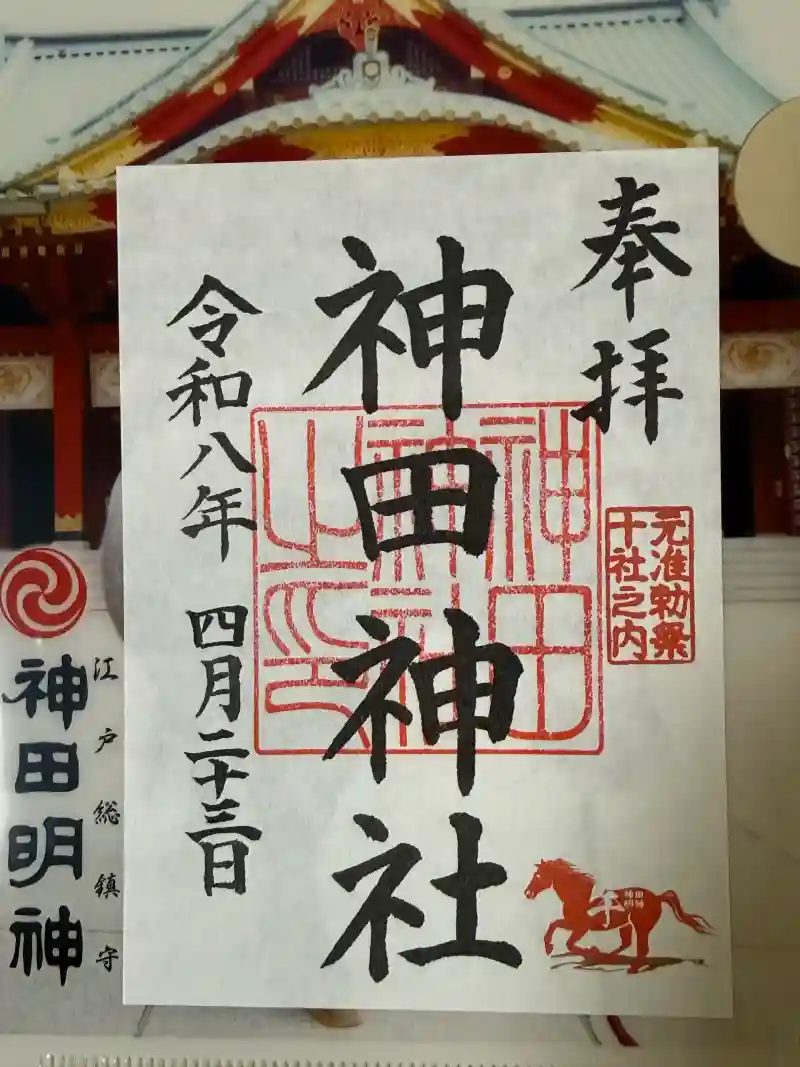 奉拝
神田神社
令和八年 四月二十三日
神田
神社
之印
元准勅祭
十社之内
午
神田明神
江戸総鎮守
神田明神